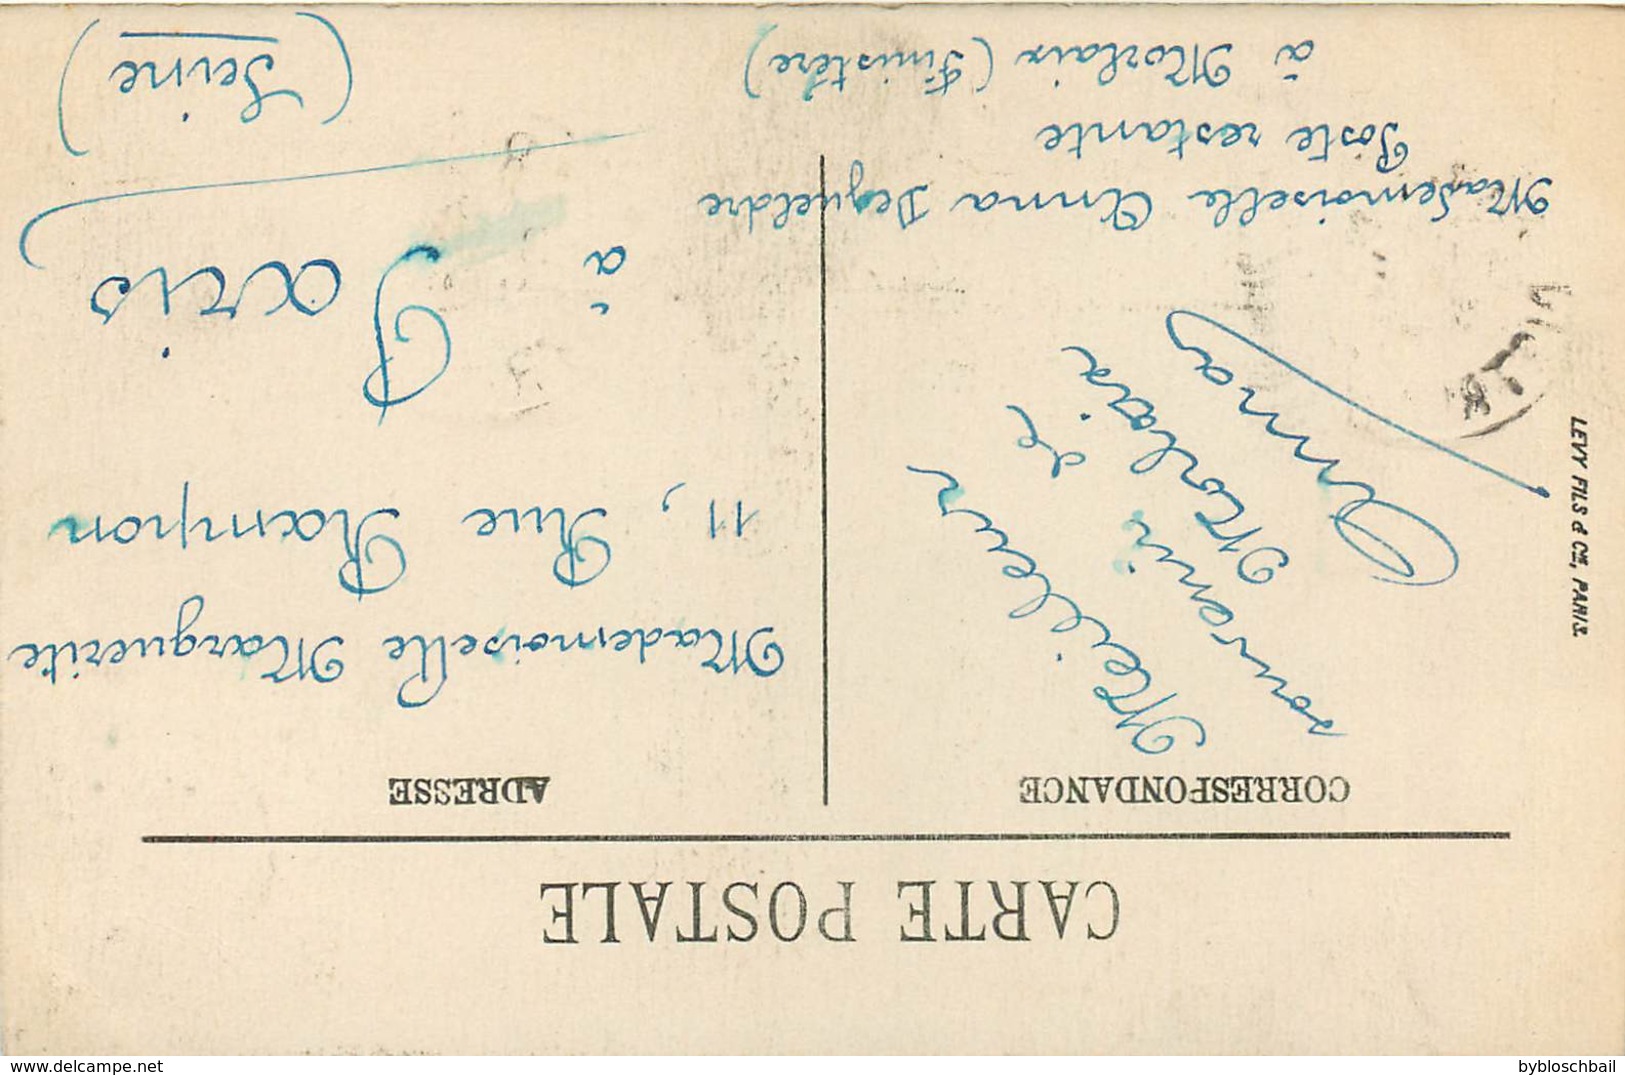 CARTE POSTALE
CORRESPONDANCE
ADRESSE
Meilleur
souvenir de
Morlaix
Anna
Mademoiselle Anna Dequeldre
Poste restante
à Morlaix (Finistère)
Mademoiselle Marguerite
11, Rue Rampon
à Paris
(Seine)
LEVY FILS & Cie, PARIS.
delcampe.net
bybloschbail